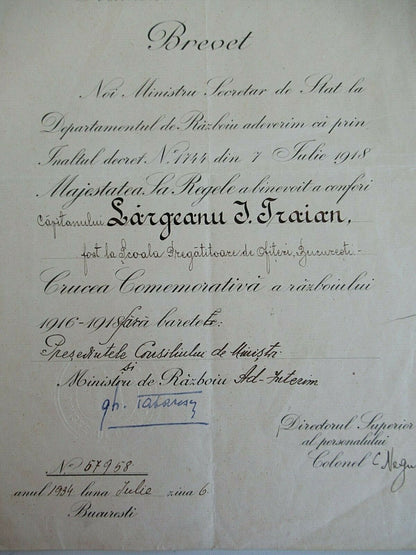 Brevet
Noi Ministru Secretar de Stat la
Departamentul de Război adeverim că prin
Înaltul decret No. 1744 din 7 Iulie 1918
Majestatea Sa Regele a binevoit a conferi
Căpitanului Lărgeanu I. Traian,
fost la Școala Pregătitoare de Ofițeri, București.-
Crucea Comemorativă a războiului
1916-1918 fără baretete:
Președintele Consiliului de Miniștri
și
Ministru de Război Ad-Interim
gh. Tatarescu
Directorul Superior
al personalului
Colonel C. Negu
No 57958
anul 1934 luna Iulie ziua 6
București